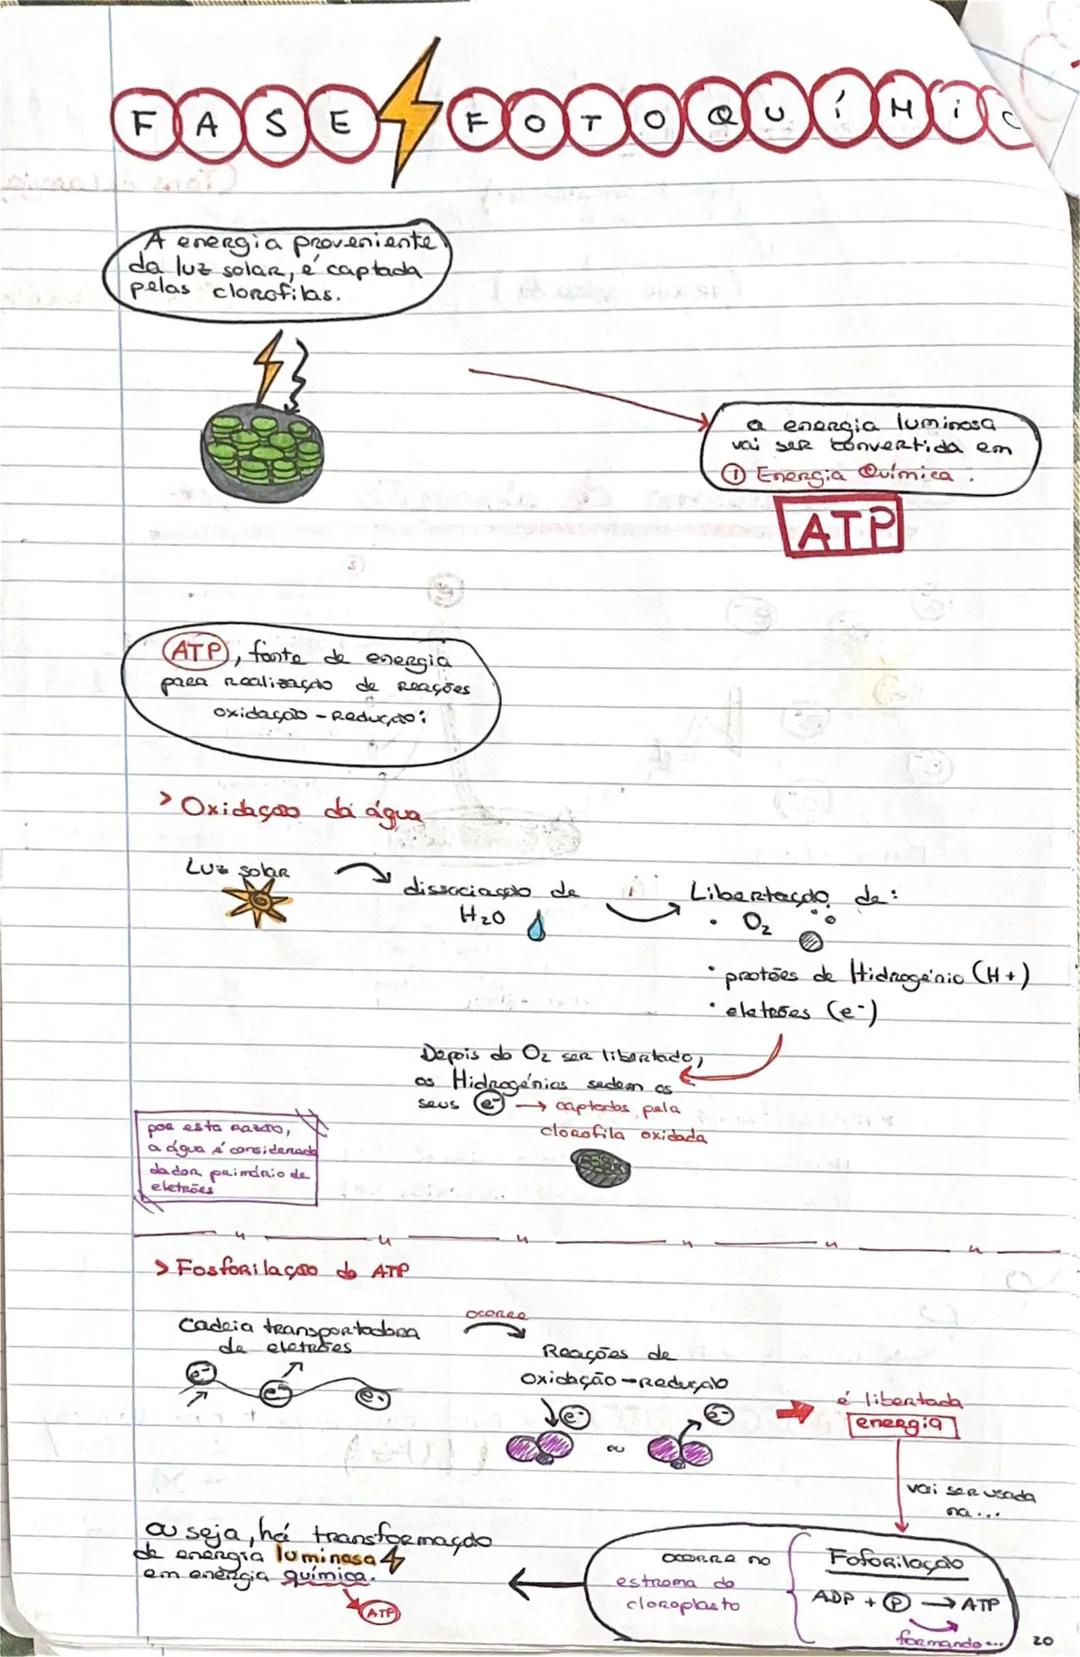 FASE FOTOQUÍMIC
A energia proveniente
da luz solar, é captada
pelas clorofilas.
a energia luminosa
vai ser convertida em
① Energia Química.
ATP
ATP, fonte de energia
para realização de reações
oxidação-redução:
> Oxidação da água
Luz solar
dissociação de
H₂O
Libertação de:
• O₂
• protões de Hidrogénio (H+)
• eletrões (e-)
Depois do O₂ ser libertado,
os Hidrogénios sedem os
seus e- → captados pela
clorofila oxidada
por esta razão,
a água é considerada
dador primário de
eletrões
> Fosforilação do ATP
Cadeia transportadora
de eletrões
e- e- e-
ocorre
Reações de
oxidação-redução
e- ou e-
é libertada
energia
vai ser usada
na...
Foforilação
ADP + P → ATP
formando...
ocorre no
estroma do
cloroplasto
ou seja, há transformação
de energia luminosa
em energia química.
ATP
20